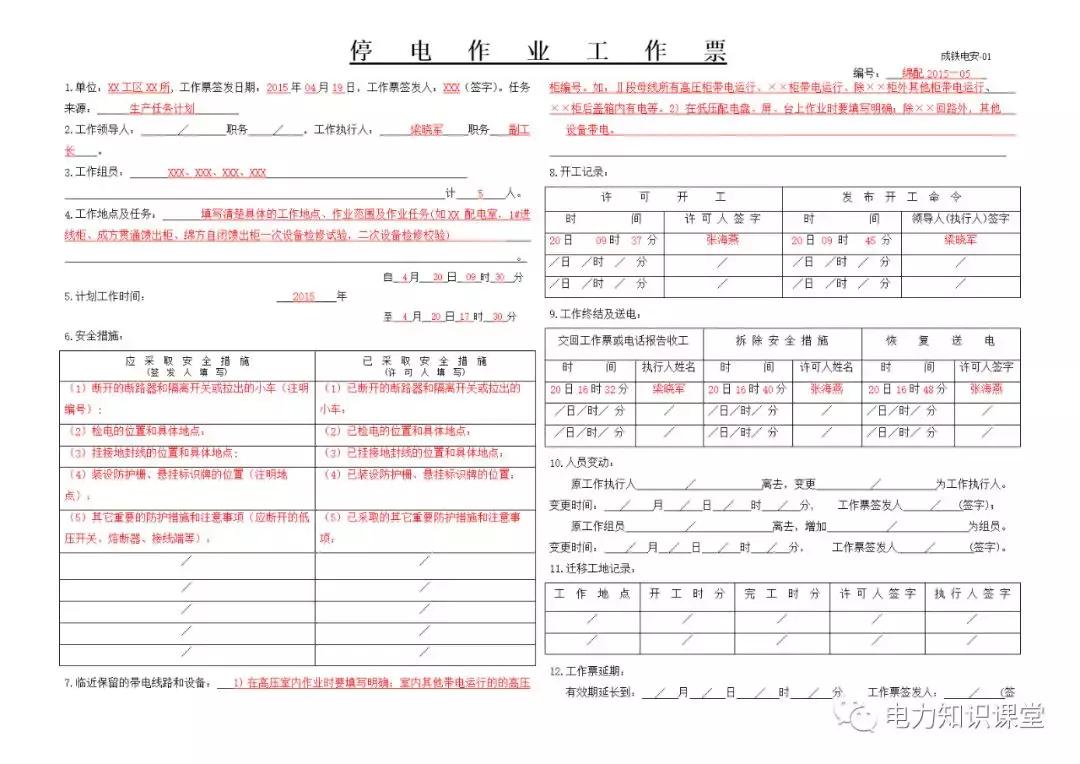 停 电 作 业 工 作 票
成铁电安-01
编号： 绵配 2015—05
1.单位：XX工区XX所，工作票签发日期，2015年04月19日，工作票签发人：XXX（签字）。任务
来源： 生产任务计划
2.工作领导人： / 职务 / 。工作执行人： 梁晓军 职务 副工
长 。
3.工作组员： XXX、XXX、XXX、XXX
计 5 人。
4.工作地点及任务： 填写清楚具体的工作地点、作业范围及作业任务(如XX 配电室，1#进
线柜、成方贯通馈出柜、绵方自闭馈出柜一次设备检修试验，二次设备检修校验）
。
自 4 月 20 日 09 时 30 分
5.计划工作时间： 2015 年
至 4 月 20 日 17 时 30 分
6.安全措施：
应 采 取 安 全 措 施 已 采 取 安 全 措 施
(签 发 人 填 写) (许 可 人 填 写)
（1）断开的断路器和隔离开关或拉出的小车（注明
编号）：
（1）已断开的断路器和隔离开关或拉出的
小车：
（2）检电的位置和具体地点： （2）已检电的位置和具体地点：
（3）挂接地封线的位置和具体地点： （3）已挂接地封线的位置和具体地点：
（4）装设防护栅、悬挂标识牌的位置（注明地
点）：
（4）已装设防护栅、悬挂标识牌的位置：
（5）其它重要的防护措施和注意事项（应断开的低
压开关、熔断器、接线端等）：
（5）已采取的其它重要防护措施和注意事
项：
／ ／
／ ／
／ ／
／ ／
／ ／
7.临近保留的带电线路和设备： 1）在高压室内作业时要填写明确：室内其他带电运行的的高压
柜编号。如，Ⅱ段母线所有高压柜带电运行、××柜带电运行、除××柜外其他柜带电运行、
××柜后盖箱内有电等。2）在低压配电盘、屏、台上作业时要填写明确：除××回路外，其他
设备带电。
8.开工记录：
许 可 开 工 发 布 开 工 命 令
时 间 许可人签字 时 间 领导人(执行人)签字
20日 09时 37 分 张海燕 20日 09 时 45 分 梁晓军
／日 ／时 ／ 分 ／ ／日 ／时 ／ 分 ／
／日 ／时 ／ 分 ／ ／日 ／时 ／ 分 ／
9.工作终结及送电：
交回工作票或电话报告收工 拆 除 安 全 措 施 恢 复 送 电
时 间 执行人姓名 时 间 许可人姓名 时 间 许可人签字
20日16时32分 梁晓军 20日16时40分 张海燕 20日16时48分 张海燕
／日／时／ 分 ／ ／日／时／ 分 ／ ／日／时／ 分 ／
／日／时／ 分 ／ ／日／时／ 分 ／ ／日／时／ 分 ／
10.人员变动：
原工作执行人 ／ 离去，变更 ／ 为工作执行人。
变更时间： ／ 月 ／ 日 ／ 时 ／ 分， 工作票签发人 ／ (签字)；
原工作组员 ／ 离去，增加 ／ 为组员。
变更时间： ／ 月 ／ 日 ／ 时 ／ 分， 工作票签发人 ／ (签字)。
11.迁移工地记录：
工 作 地 点 开 工 时 分 完 工 时 分 许 可 人 签 字 执 行 人 签 字
／ ／ ／ ／ ／
／ ／ ／ ／ ／
12.工作票延期：
有效期延长到： ／ 月 ／ 日 ／ 时 ／ 分 工作票签发人： ／ (签
电力知识课堂